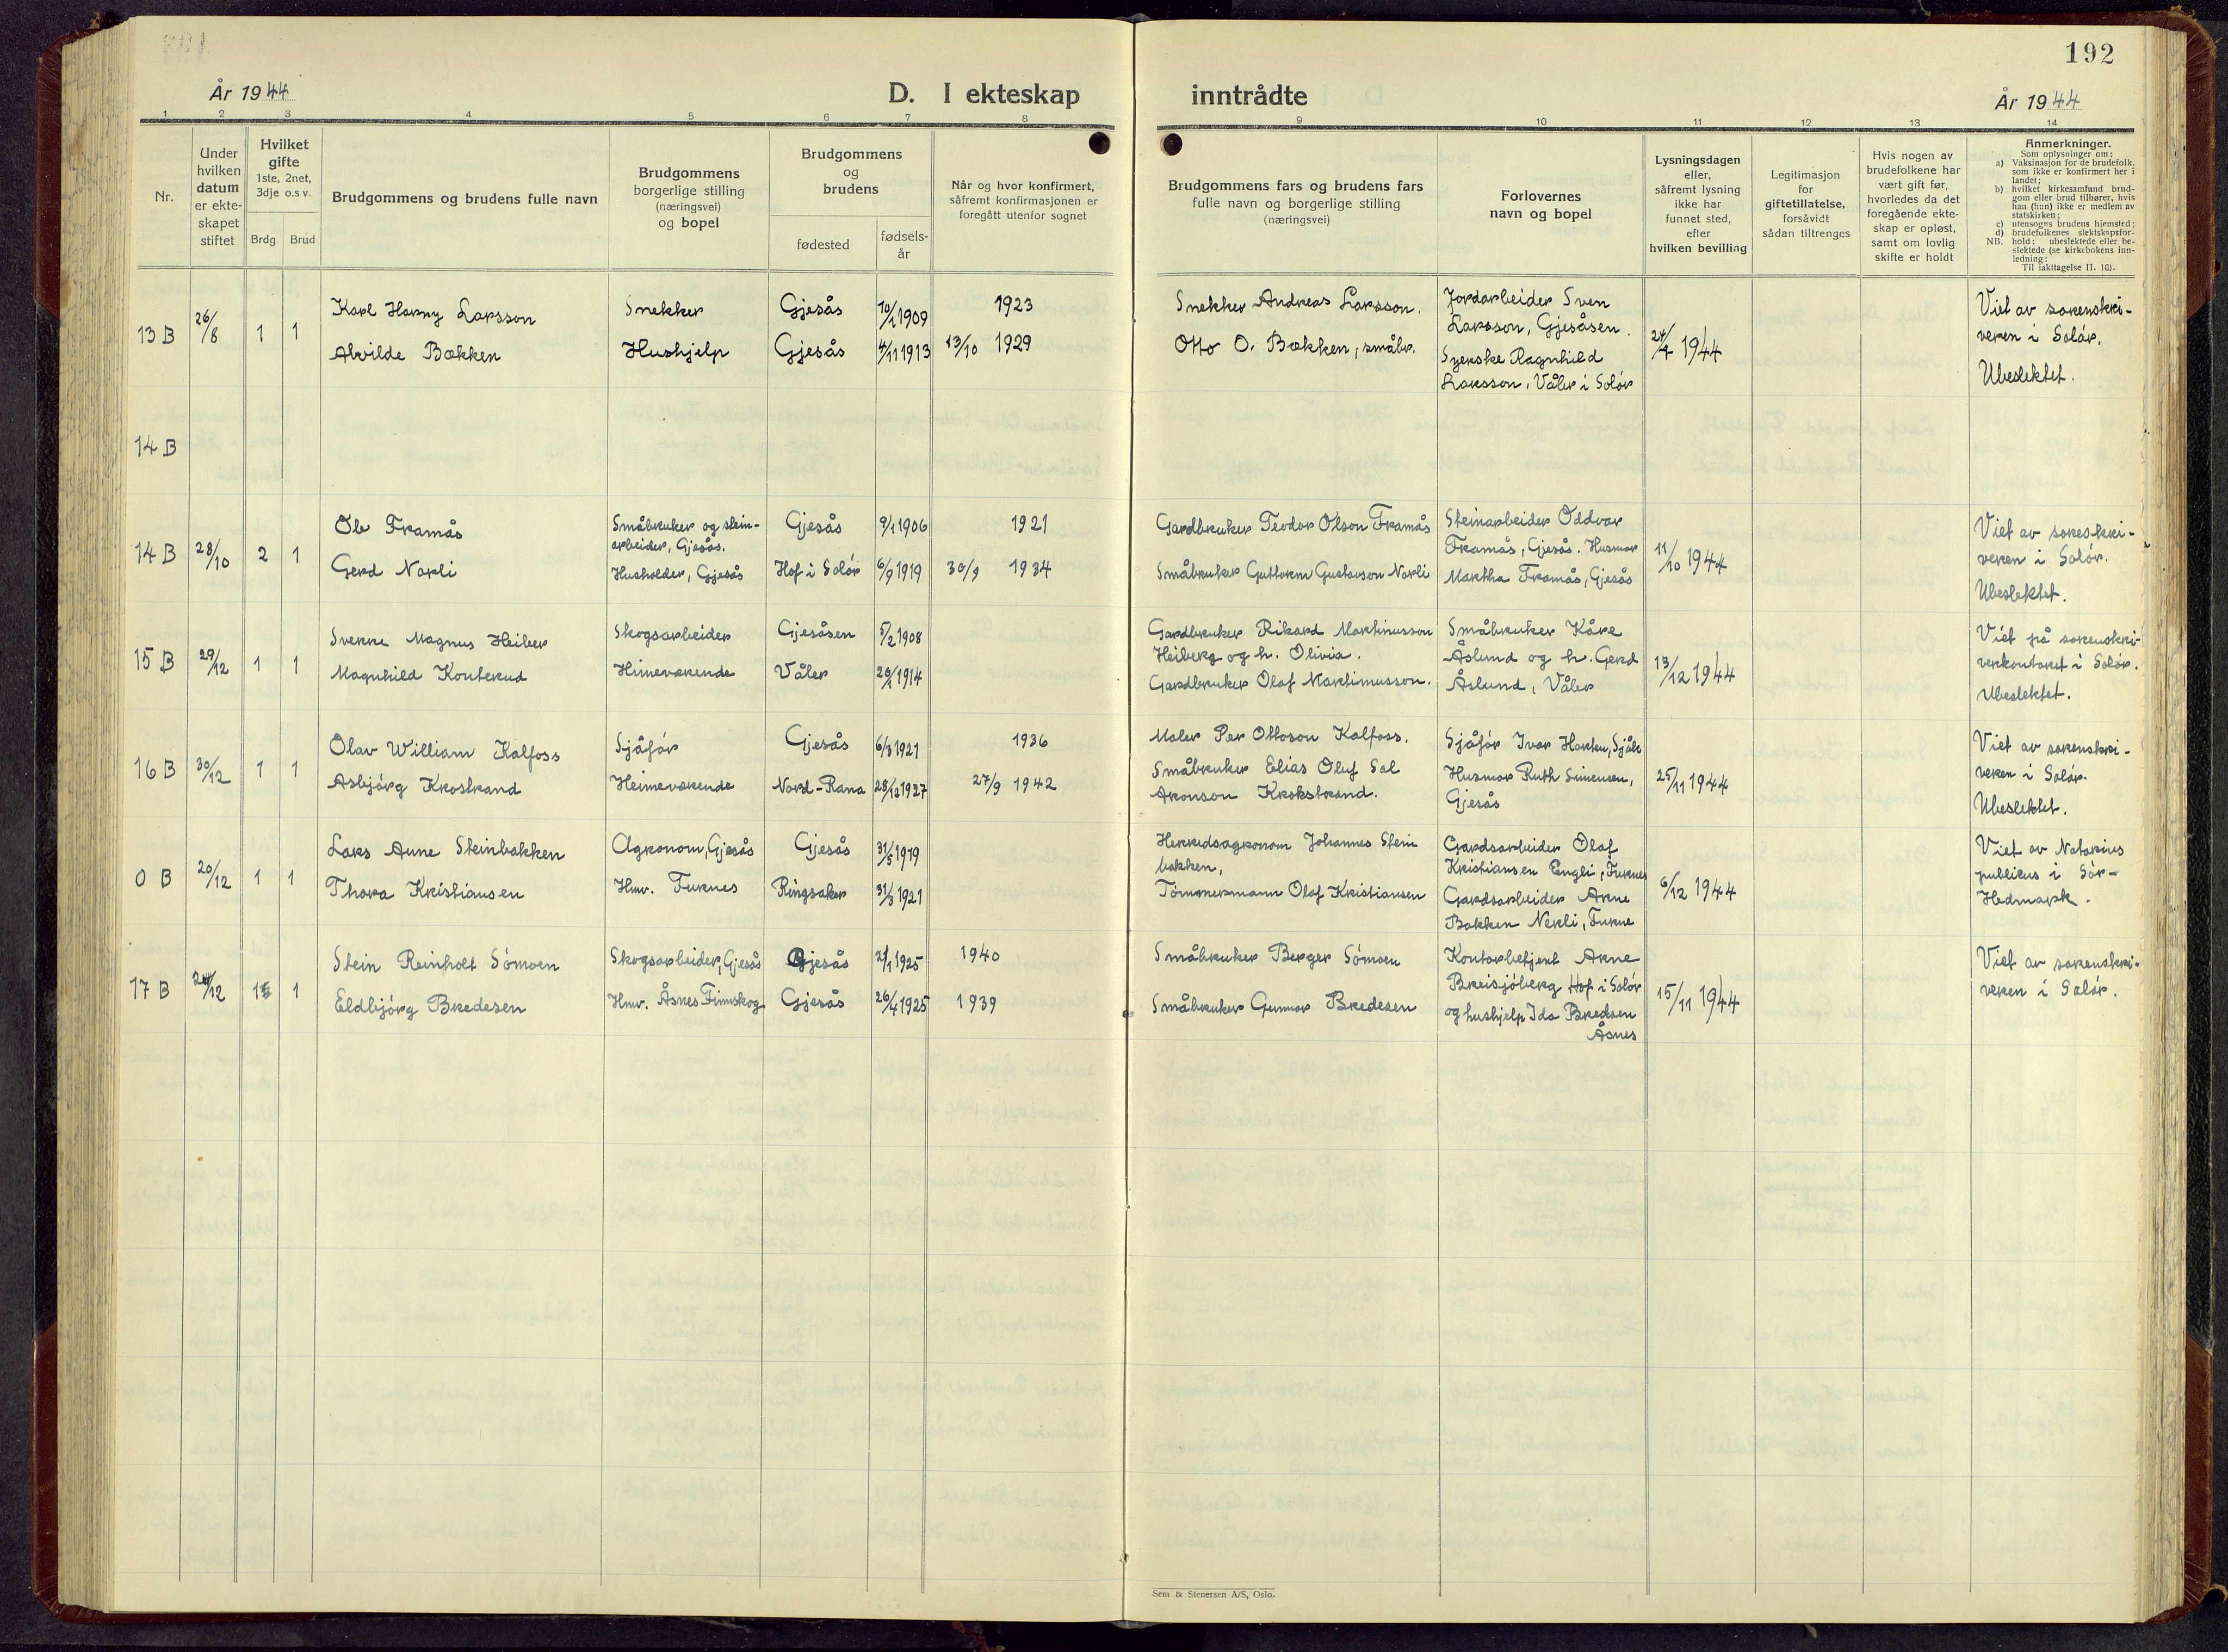 192
År 1944
D. I ekteskap
inntrådte
År 1944
1 2 3 4 5 6 7 8 9 10 11 12 13 14
Nr.
Under
hvilken
datum
er ekte-
skapet
stiftet
Hvilket
gifte
1ste, 2net,
3dje o.s v.
Brdg. Brud
Brudgommens og brudens fulle navn
Brudgommens
borgerlige stilling
(næringsvei)
og bopel
Brudgommens
og
brudens
fødested
fødsels-
år
Når og hvor konfirmert,
såfremt konfirmasjonen er
foregått utenfor sognet
Brudgommens fars og brudens fars
fulle navn og borgerlige stilling
(næringsvei)
Forlovernes
navn og bopel
Lysningsdagen
eller,
såfremt lysning
ikke har
funnet sted,
efter
hvilken bevilling
Legitimasjon
for
giftetillatelse,
forsåvidt
sådan tiltrenges
Hvis nogen av
brudefolkene har
vært gift før,
hvorledes da det
foregående ekte-
skap er opløst,
samt om lovlig
skifte er holdt
Anmerkninger.
Som oplysninger om:
a) Vaksinasjon for de brudefolk,
som ikke er konfirmert her i
landet;
b) hvilket kirkesamfund brud-
gom eller brud tilhører, hvis
han (hun) ikke er medlem av
statskirken;
c) utensogns brudens hjemsted;
d) brudefolkenes slektskapsfor-
NB. hold: ubeslektede eller be-
slektede (se kirkebokens inn-
ledning;
Til iakttagelse II. 10).
13 B
26/8
1 1
Karl Harry Larsson
Alvilde Bækken
Snekker
Hushjelp
Gjesås
Gjesås
1909
4/11 1913
1923
13/10 1929
Snekker Andreas Larsson.
Otto O. Bækken, småbr.
Jordarbeider Sven
Larsson, Gjesåsen.
Syerske Ragnhild
Larsson, Våler i Solør
1944
Viet av sorenskri-
veren i Solør.
Ubeslektet.
14 B
14 B
28/10
2 1
Ole Framås
Gerd Norli
Småbruker og stein-
arbeider, Gjesås.
Husholder, Gjesås
Gjesås
Hof i Solør
9/1 1906
6/9 1919
1921
30/9 1934
Gardbruker Teodor Olson Framås
Småbruker Guttorm Gustavson Norli
Steinarbeider Oddvar
Framås, Gjesås. Husmor
Martha Framås, Gjesås
11/10 1944
Viet av soreskri-
veren i Solør.
Ubeslektet.
15 B
29/12
1 1
Sverre Magnus Heiber
Magnhild Konterud
Skogsarbeider
Himeværende
Gjesåsen
Våler
5/2 1908
26/1 1914
Gardbruker Rikard Martinusson
Heiberg og h. Olivia.
Gardbruker Olaf Martinusson.
Småbruker Kåre
Åslund og h. Gerd
Åslund, Våler
13/12 1944
Viet på sorenskri-
verkontoret i Solør.
Ubeslektet.
16 B
30/12
1 1
Olav William Kalfoss
Asbjørg Krostrand
Sjåfør
Heimeværende
Gjesås
Nord-Rana
6/3 1921
28/12 1927
1936
27/9 1942
Maler Per Ottoson Kalfoss.
Småbruker Elias Oluf Sal
Aronson Krokstrand.
Sjåfør Ivar
Husmor Ruth Simensen,
Gjesås
25/11 1944
Viet av sorenskri-
veren i Solør.
Ubeslektet.
0 B
20/12
1 1
Lars Aune Steinbakken
Thora Kristiansen
Agronom, Gjesås
Hmv. Furnes
Gjesås
Ringsaker
31/5 1919
31/3 1921
Herredsagronom Johannes Stein
bakken,
Tømmermann Olaf Kristiansen
Gardsarbeider Olaf
Kristiansen Engli, Furnes
Gardsarbeider Arne
Bakken Nerli, Furne
6/12 1944
Viet av Notarius
publicus i Sør-
Hedmark.
17 B
1 1
Stein Reinholt Sømoen
Eldbjørg Bredesen
Skogsarbeider, Gjesås
Hmv. Åsnes Finnskog
Gjesås
Gjesås
2/1 1925
26/4 1925
1940
1939
Småbruker Berger Sømoen
Småbruker Gunnar Bredesen
Kontorbetjent Arne
Breisjøberg Hof i Solør
og hushjelp Ida Bredesen
Åsnes
15/11 1944
Viet av sorenskri-
veren i Solør.
Sem & Stenersen A/S, Oslo.